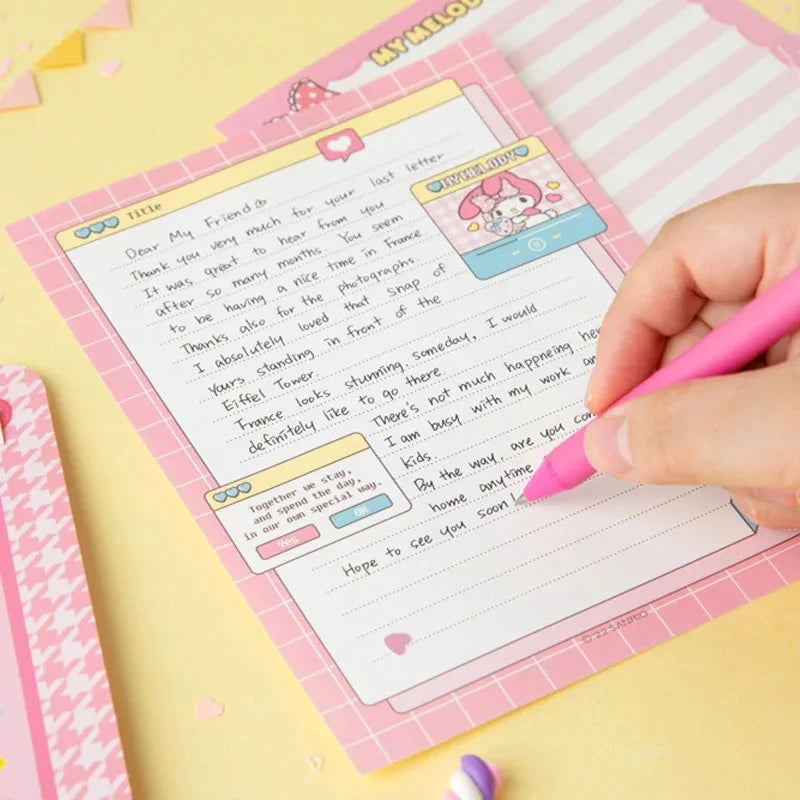 MY MELODY
Title
Dear My Friend
Thank you very much for your last letter
It was great to hear from you
after so many months. You seem
to be having a nice time in France
Thanks also for the photographs.
I absolutely loved that snap of
yours standing in front of the
Eiffel Tower.
France looks stunning, someday, I would
definitely like to go there
MY MELODY
There's not much happneing her
I am busy with my work an
kids.
By the way, are you com
home anytime
Hope to see you soon!
Together we stay,
and spend the day,
in our own special way.
Yes
OK
© '22 SANRIO